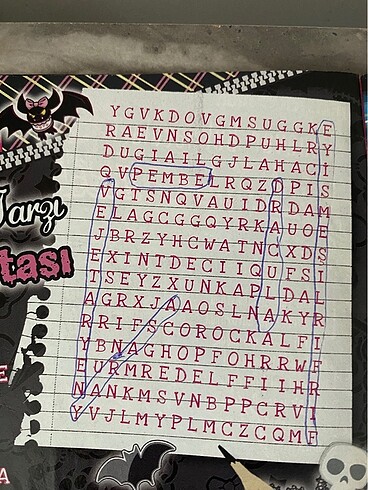 YGVKDOVGMSUGGKE
RAEVNSOHDPUHLRY
DUGIAILGJLAHACİ
QVPEMBELRQZOPIS
VGTSNQVAUIDRDAM
ELAGCGGQYRKAUOE
JBRZYHCWATNCXDS
EXINTDECIIQUFSI
TSEYZXUNKAPLDAL
AGRXJAAOSLNAKYR
RRIFSCOROCKALFI
YBNAGHOPFOHRRWF
EURMREDELFFIIHR
NANKMSVNBPPCRVI
YVJLMYPLMCZCQMF
Tarzı
tası
E
A